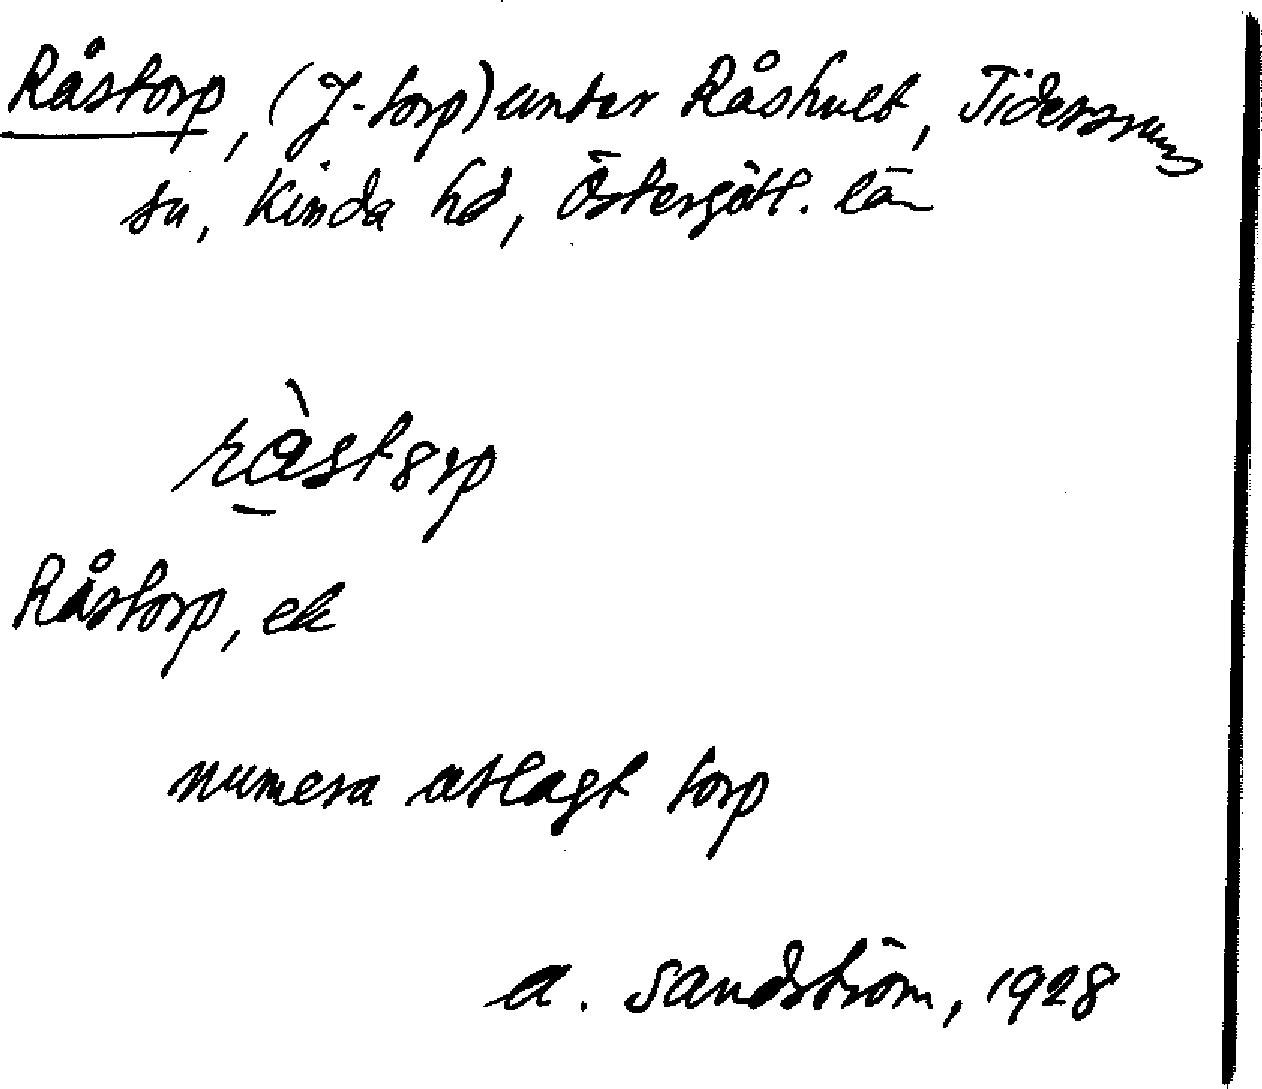 Råstorp, (J-torp) under Råshult, Tidersrums
sn, Kinda hd, Östergötl. län
ràstorp
Råstorp, ek
numera utlagt torp
A. Sandström, 1928